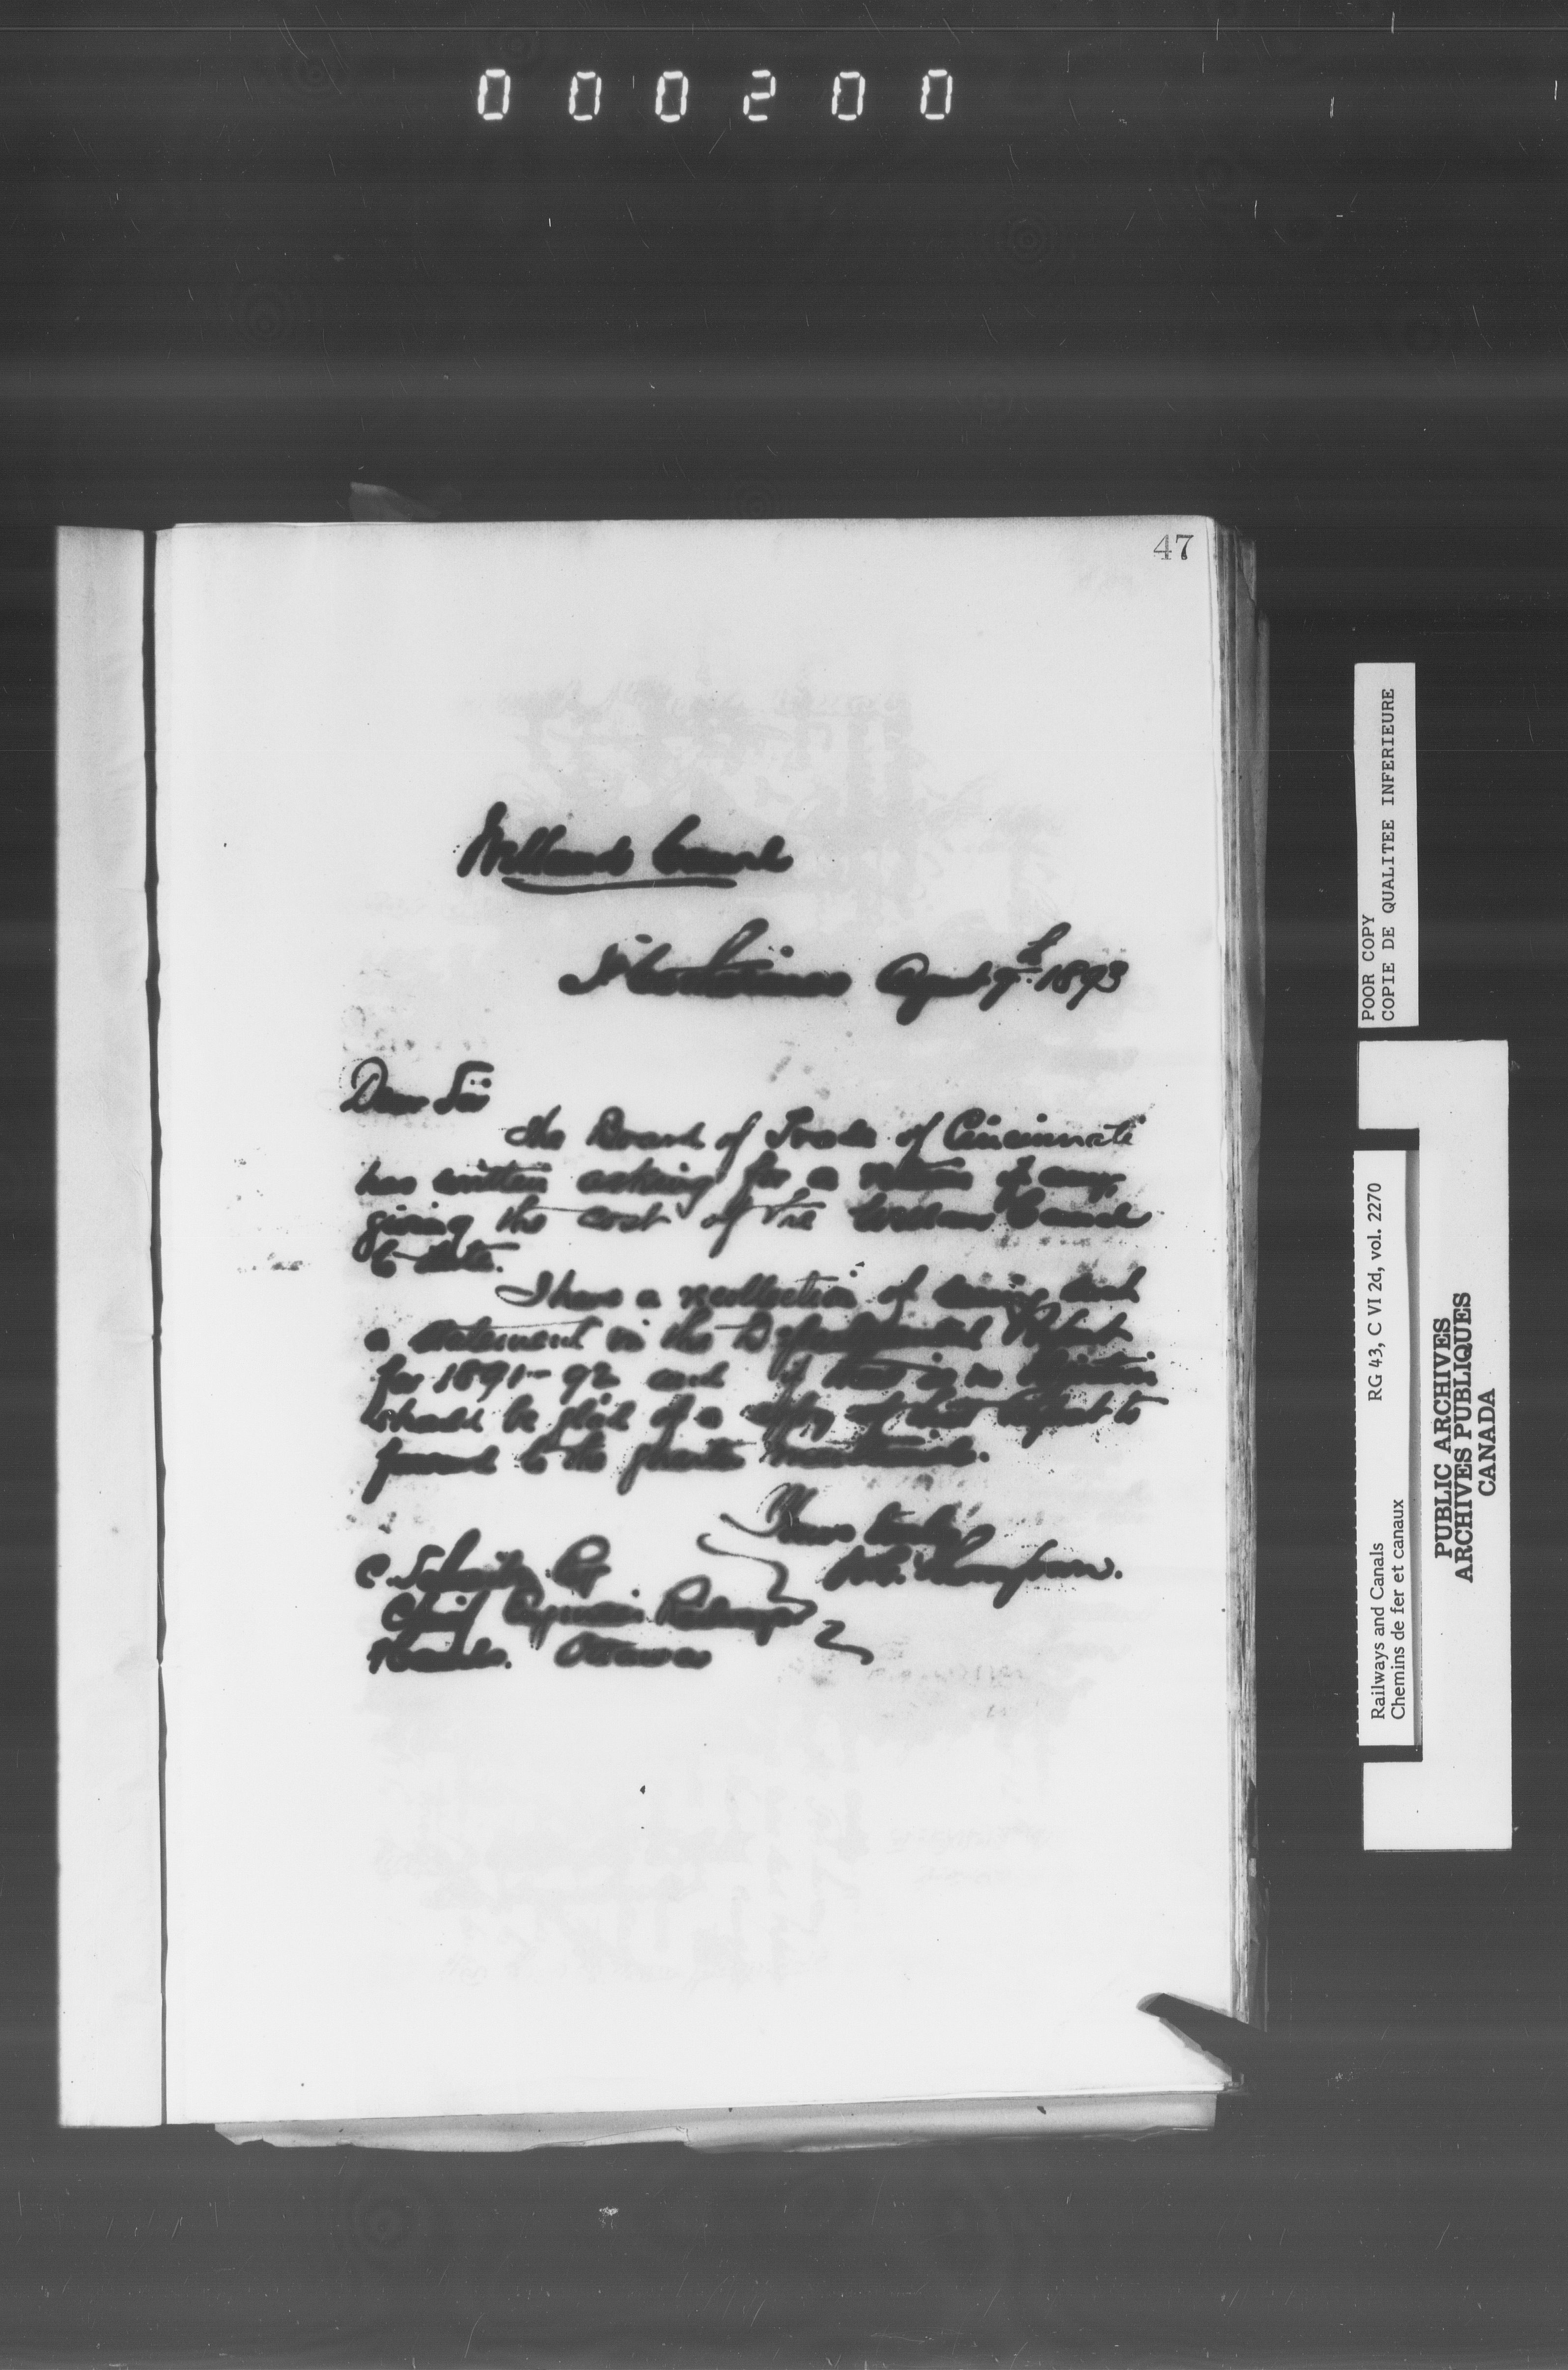 000200
47
Welland Canal
St Catharines August 9th 1893
Dear Sir
The Board of Trade of Cincinnati
has written asking for a return if any,
giving the cost of the Welland Canal
to date.
I have a recollection of seeing such
a statement in the Departmental Report
for 1891-92 and if that is in
should be glad of a copy of that Report to
to the
Yours truly
C Schreiber Esq
Chief Engineer Railways
Canals. Ottawa
POOR COPY
COPIE DE QUALITEE INFERIEURE
RG 43, C VI 2d, vol. 2270
Railways and Canals
Chemins de fer et canaux
PUBLIC ARCHIVES
ARCHIVES PUBLIQUES
CANADA